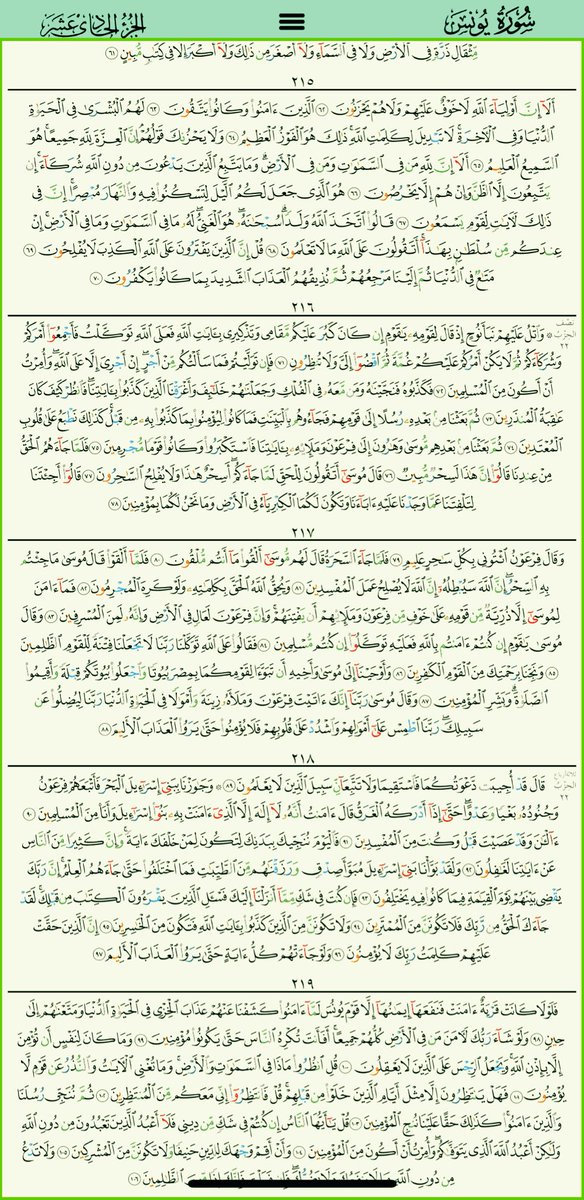 سُورَةُ يُونُسَ
الجُزْءُ الحَادِي عَشَرَ
مِّثْقَالِ ذَرَّةٍ فِي الْأَرْضِ وَلَا فِي السَّمَاءِ وَلَا أَصْغَرَ مِن ذَٰلِكَ وَلَا أَكْبَرَ إِلَّا فِي كِتَابٍ مُّبِينٍ ٦١
٢١٥
أَلَا إِنَّ أَوْلِيَاءَ اللَّهِ لَا خَوْفٌ عَلَيْهِمْ وَلَا هُمْ يَحْزَنُونَ ٦٢ الَّذِينَ ءَامَنُوا وَكَانُوا يَتَّقُونَ ٦٣ لَهُمُ الْبُشْرَىٰ فِي الْحَيَوٰةِ
الدُّنْيَا وَفِي الْآخِرَةِ لَا تَبْدِيلَ لِكَلِمَاتِ اللَّهِ ذَٰلِكَ هُوَ الْفَوْزُ الْعَظِيمُ ٦٤ وَلَا يَحْزُنكَ قَوْلُهُمْ إِنَّ الْعِزَّةَ لِلَّهِ جَمِيعًا هُوَ
السَّمِيعُ الْعَلِيمُ ٦٥ أَلَا إِنَّ لِلَّهِ مَن فِي السَّمَاوَاتِ وَمَن فِي الْأَرْضِ وَمَا يَتَّبِعُ الَّذِينَ يَدْعُونَ مِن دُونِ اللَّهِ شُرَكَاءَ إِن
يَتَّبِعُونَ إِلَّا الظَّنَّ وَإِنْ هُمْ إِلَّا يَخْرُصُونَ ٦٦ هُوَ الَّذِي جَعَلَ لَكُمُ الَّيْلَ لِتَسْكُنُوا فِيهِ وَالنَّهَارَ مُبْصِرًا إِنَّ فِي
ذَٰلِكَ لَآيَاتٍ لِّقَوْمٍ يَسْمَعُونَ ٦٧ قَالُوا اتَّخَذَ اللَّهُ وَلَدًا سُبْحَانَهُ هُوَ الْغَنِيُّ لَهُ مَا فِي السَّمَاوَاتِ وَمَا فِي الْأَرْضِ إِنْ
عِندَكُم مِّن سُلْطَانٍ بِهَٰذَا أَتَقُولُونَ عَلَى اللَّهِ مَا لَا تَعْلَمُونَ ٦٨ قُلْ إِنَّ الَّذِينَ يَفْتَرُونَ عَلَى اللَّهِ الْكَذِبَ لَا يُفْلِحُونَ ٦٩
مَتَاعٌ فِي الدُّنْيَا ثُمَّ إِلَيْنَا مَرْجِعُهُمْ ثُمَّ نُذِيقُهُمُ الْعَذَابَ الشَّدِيدَ بِمَا كَانُوا يَكْفُرُونَ ٧٠
٢١٦
نصف الحزب ٢٢
وَاتْلُ عَلَيْهِمْ نَبَأَ نُوحٍ إِذْ قَالَ لِقَوْمِهِ يَاقَوْمِ إِن كَانَ كَبُرَ عَلَيْكُم مَّقَامِي وَتَذْكِيرِي بِـَٔايَاتِ اللَّهِ فَعَلَى اللَّهِ تَوَكَّلْتُ فَأَجْمِعُوا أَمْرَكُمْ
وَشُرَكَاءَكُمْ ثُمَّ لَا يَكُنْ أَمْرُكُمْ عَلَيْكُمْ غُمَّةً ثُمَّ اقْضُوا إِلَيَّ وَلَا تُنظِرُونِ ٧١ فَإِن تَوَلَّيْتُمْ فَمَا سَأَلْتُكُم مِّنْ أَجْرٍ إِنْ أَجْرِيَ إِلَّا عَلَى اللَّهِ وَأُمِرْتُ
أَنْ أَكُونَ مِنَ الْمُسْلِمِينَ ٧٢ فَكَذَّبُوهُ فَنَجَّيْنَاهُ وَمَن مَّعَهُ فِي الْفُلْكِ وَجَعَلْنَاهُمْ خَلَائِفَ وَأَغْرَقْنَا الَّذِينَ كَذَّبُوا بِـَٔايَاتِنَا فَانظُرْ كَيْفَ كَانَ
عَاقِبَةُ الْمُنذَرِينَ ٧٣ ثُمَّ بَعَثْنَا مِن بَعْدِهِ رُسُلًا إِلَىٰ قَوْمِهِمْ فَجَاءُوهُم بِالْبَيِّنَاتِ فَمَا كَانُوا لِيُؤْمِنُوا بِمَا كَذَّبُوا بِهِ مِن قَبْلُ كَذَٰلِكَ نَطْبَعُ عَلَىٰ قُلُوبِ
الْمُعْتَدِينَ ٧٤ ثُمَّ بَعَثْنَا مِن بَعْدِهِم مُّوسَىٰ وَهَارُونَ إِلَىٰ فِرْعَوْنَ وَمَلَإِيهِ بِـَٔايَاتِنَا فَاسْتَكْبَرُوا وَكَانُوا قَوْمًا مُّجْرِمِينَ ٧٥ فَلَمَّا جَاءَهُمُ الْحَقُّ
مِنْ عِندِنَا قَالُوا إِنَّ هَٰذَا لَسِحْرٌ مُّبِينٌ ٧٦ قَالَ مُوسَىٰ أَتَقُولُونَ لِلْحَقِّ لَمَّا جَاءَكُمْ أَسِحْرٌ هَٰذَا وَلَا يُفْلِحُ السَّاحِرُونَ ٧٧ قَالُوا أَجِئْتَنَا
لِتَلْفِتَنَا عَمَّا وَجَدْنَا عَلَيْهِ ءَابَاءَنَا وَتَكُونَ لَكُمَا الْكِبْرِيَاءُ فِي الْأَرْضِ وَمَا نَحْنُ لَكُمَا بِمُؤْمِنِينَ ٧٨
٢١٧
وَقَالَ فِرْعَوْنُ ائْتُونِي بِكُلِّ سَاحِرٍ عَلِيمٍ ٧٩ فَلَمَّا جَاءَ السَّحَرَةُ قَالَ لَهُم مُّوسَىٰ أَلْقُوا مَا أَنتُم مُّلْقُونَ ٨٠ فَلَمَّا أَلْقَوْا قَالَ مُوسَىٰ مَا جِئْتُم
بِهِ السِّحْرُ إِنَّ اللَّهَ سَيُبْطِلُهُ إِنَّ اللَّهَ لَا يُصْلِحُ عَمَلَ الْمُفْسِدِينَ ٨١ وَيُحِقُّ اللَّهُ الْحَقَّ بِكَلِمَاتِهِ وَلَوْ كَرِهَ الْمُجْرِمُونَ ٨٢ فَمَا ءَامَنَ
لِمُوسَىٰ إِلَّا ذُرِّيَّةٌ مِّن قَوْمِهِ عَلَىٰ خَوْفٍ مِّن فِرْعَوْنَ وَمَلَإِيهِمْ أَن يَفْتِنَهُمْ وَإِنَّ فِرْعَوْنَ لَعَالٍ فِي الْأَرْضِ وَإِنَّهُ لَمِنَ الْمُسْرِفِينَ ٨٣ وَقَالَ
مُوسَىٰ يَاقَوْمِ إِن كُنتُمْ ءَامَنتُم بِاللَّهِ فَعَلَيْهِ تَوَكَّلُوا إِن كُنتُم مُّسْلِمِينَ ٨٤ فَقَالُوا عَلَى اللَّهِ تَوَكَّلْنَا رَبَّنَا لَا تَجْعَلْنَا فِتْنَةً لِّلْقَوْمِ الظَّالِمِينَ
٨٥ وَنَجِّنَا بِرَحْمَتِكَ مِنَ الْقَوْمِ الْكَافِرِينَ ٨٦ وَأَوْحَيْنَا إِلَىٰ مُوسَىٰ وَأَخِيهِ أَن تَبَوَّءَا لِقَوْمِكُمَا بِمِصْرَ بُيُوتًا وَاجْعَلُوا بُيُوتَكُمْ قِبْلَةً وَأَقِيمُوا
الصَّلَوٰةَ وَبَشِّرِ الْمُؤْمِنِينَ ٨٧ وَقَالَ مُوسَىٰ رَبَّنَا إِنَّكَ ءَاتَيْتَ فِرْعَوْنَ وَمَلَأَهُ زِينَةً وَأَمْوَالًا فِي الْحَيَوٰةِ الدُّنْيَا رَبَّنَا لِيُضِلُّوا عَن
سَبِيلِكَ رَبَّنَا اطْمِسْ عَلَىٰ أَمْوَالِهِمْ وَاشْدُدْ عَلَىٰ قُلُوبِهِمْ فَلَا يُؤْمِنُوا حَتَّىٰ يَرَوُا الْعَذَابَ الْأَلِيمَ ٨٨
٢١٨
ثلاثة أرباع الحزب ٢٢
قَالَ قَدْ أُجِيبَت دَّعْوَتُكُمَا فَاسْتَقِيمَا وَلَا تَتَّبِعَانِّ سَبِيلَ الَّذِينَ لَا يَعْلَمُونَ ٨٩ وَجَاوَزْنَا بِبَنِي إِسْرَائِيلَ الْبَحْرَ فَأَتْبَعَهُمْ فِرْعَوْنُ
وَجُنُودُهُ بَغْيًا وَعَدْوًا حَتَّىٰ إِذَا أَدْرَكَهُ الْغَرَقُ قَالَ ءَامَنتُ أَنَّهُ لَا إِلَٰهَ إِلَّا الَّذِي ءَامَنَتْ بِهِ بَنُوا إِسْرَائِيلَ وَأَنَا مِنَ الْمُسْلِمِينَ ٩٠
ءَآلْـَٰٔنَ وَقَدْ عَصَيْتَ قَبْلُ وَكُنتَ مِنَ الْمُفْسِدِينَ ٩١ فَالْيَوْمَ نُنَجِّيكَ بِبَدَنِكَ لِتَكُونَ لِمَنْ خَلْفَكَ ءَايَةً وَإِنَّ كَثِيرًا مِّنَ النَّاسِ
عَنْ ءَايَاتِنَا لَغَافِلُونَ ٩٢ وَلَقَدْ بَوَّأْنَا بَنِي إِسْرَائِيلَ مُبَوَّأَ صِدْقٍ وَرَزَقْنَاهُم مِّنَ الطَّيِّبَاتِ فَمَا اخْتَلَفُوا حَتَّىٰ جَاءَهُمُ الْعِلْمُ إِنَّ رَبَّكَ
يَقْضِي بَيْنَهُمْ يَوْمَ الْقِيَامَةِ فِيمَا كَانُوا فِيهِ يَخْتَلِفُونَ ٩٣ فَإِن كُنتَ فِي شَكٍّ مِّمَّا أَنزَلْنَا إِلَيْكَ فَسْـَٔلِ الَّذِينَ يَقْرَءُونَ الْكِتَابَ مِن قَبْلِكَ لَقَدْ
جَاءَكَ الْحَقُّ مِن رَّبِّكَ فَلَا تَكُونَنَّ مِنَ الْمُمْتَرِينَ ٩٤ وَلَا تَكُونَنَّ مِنَ الَّذِينَ كَذَّبُوا بِـَٔايَاتِ اللَّهِ فَتَكُونَ مِنَ الْخَاسِرِينَ ٩٥ إِنَّ الَّذِينَ حَقَّتْ
عَلَيْهِمْ كَلِمَتُ رَبِّكَ لَا يُؤْمِنُونَ ٩٦ وَلَوْ جَاءَتْهُمْ كُلُّ ءَايَةٍ حَتَّىٰ يَرَوُا الْعَذَابَ الْأَلِيمَ ٩٧
٢١٩
فَلَوْلَا كَانَتْ قَرْيَةٌ ءَامَنَتْ فَنَفَعَهَا إِيمَانُهَا إِلَّا قَوْمَ يُونُسَ لَمَّا ءَامَنُوا كَشَفْنَا عَنْهُمْ عَذَابَ الْخِزْيِ فِي الْحَيَوٰةِ الدُّنْيَا وَمَتَّعْنَاهُمْ إِلَىٰ
حِينٍ ٩٨ وَلَوْ شَاءَ رَبُّكَ لَآمَنَ مَن فِي الْأَرْضِ كُلُّهُمْ جَمِيعًا أَفَأَنتَ تُكْرِهُ النَّاسَ حَتَّىٰ يَكُونُوا مُؤْمِنِينَ ٩٩ وَمَا كَانَ لِنَفْسٍ أَن تُؤْمِنَ
إِلَّا بِإِذْنِ اللَّهِ وَيَجْعَلُ الرِّجْسَ عَلَى الَّذِينَ لَا يَعْقِلُونَ ١٠٠ قُلِ انظُرُوا مَاذَا فِي السَّمَاوَاتِ وَالْأَرْضِ وَمَا تُغْنِي الْآيَاتُ وَالنُّذُرُ عَن قَوْمٍ لَّا
يُؤْمِنُونَ ١٠١ فَهَلْ يَنتَظِرُونَ إِلَّا مِثْلَ أَيَّامِ الَّذِينَ خَلَوْا مِن قَبْلِهِمْ قُلْ فَانتَظِرُوا إِنِّي مَعَكُم مِّنَ الْمُنتَظِرِينَ ١٠٢ ثُمَّ نُنَجِّي رُسُلَنَا
وَالَّذِينَ ءَامَنُوا كَذَٰلِكَ حَقًّا عَلَيْنَا نُنجِ الْمُؤْمِنِينَ ١٠٣ قُلْ يَاأَيُّهَا النَّاسُ إِن كُنتُمْ فِي شَكٍّ مِّن دِينِي فَلَا أَعْبُدُ الَّذِينَ تَعْبُدُونَ مِن دُونِ اللَّهِ
وَلَٰكِنْ أَعْبُدُ اللَّهَ الَّذِي يَتَوَفَّاكُمْ وَأُمِرْتُ أَنْ أَكُونَ مِنَ الْمُؤْمِنِينَ ١٠٤ وَأَنْ أَقِمْ وَجْهَكَ لِلدِّينِ حَنِيفًا وَلَا تَكُونَنَّ مِنَ الْمُشْرِكِينَ ١٠٥ وَلَا تَدْعُ
مِن دُونِ اللَّهِ مَا لَا يَنفَعُكَ وَلَا يَضُرُّكَ فَإِن فَعَلْتَ فَإِنَّكَ إِذًا مِّنَ الظَّالِمِينَ ١٠٦